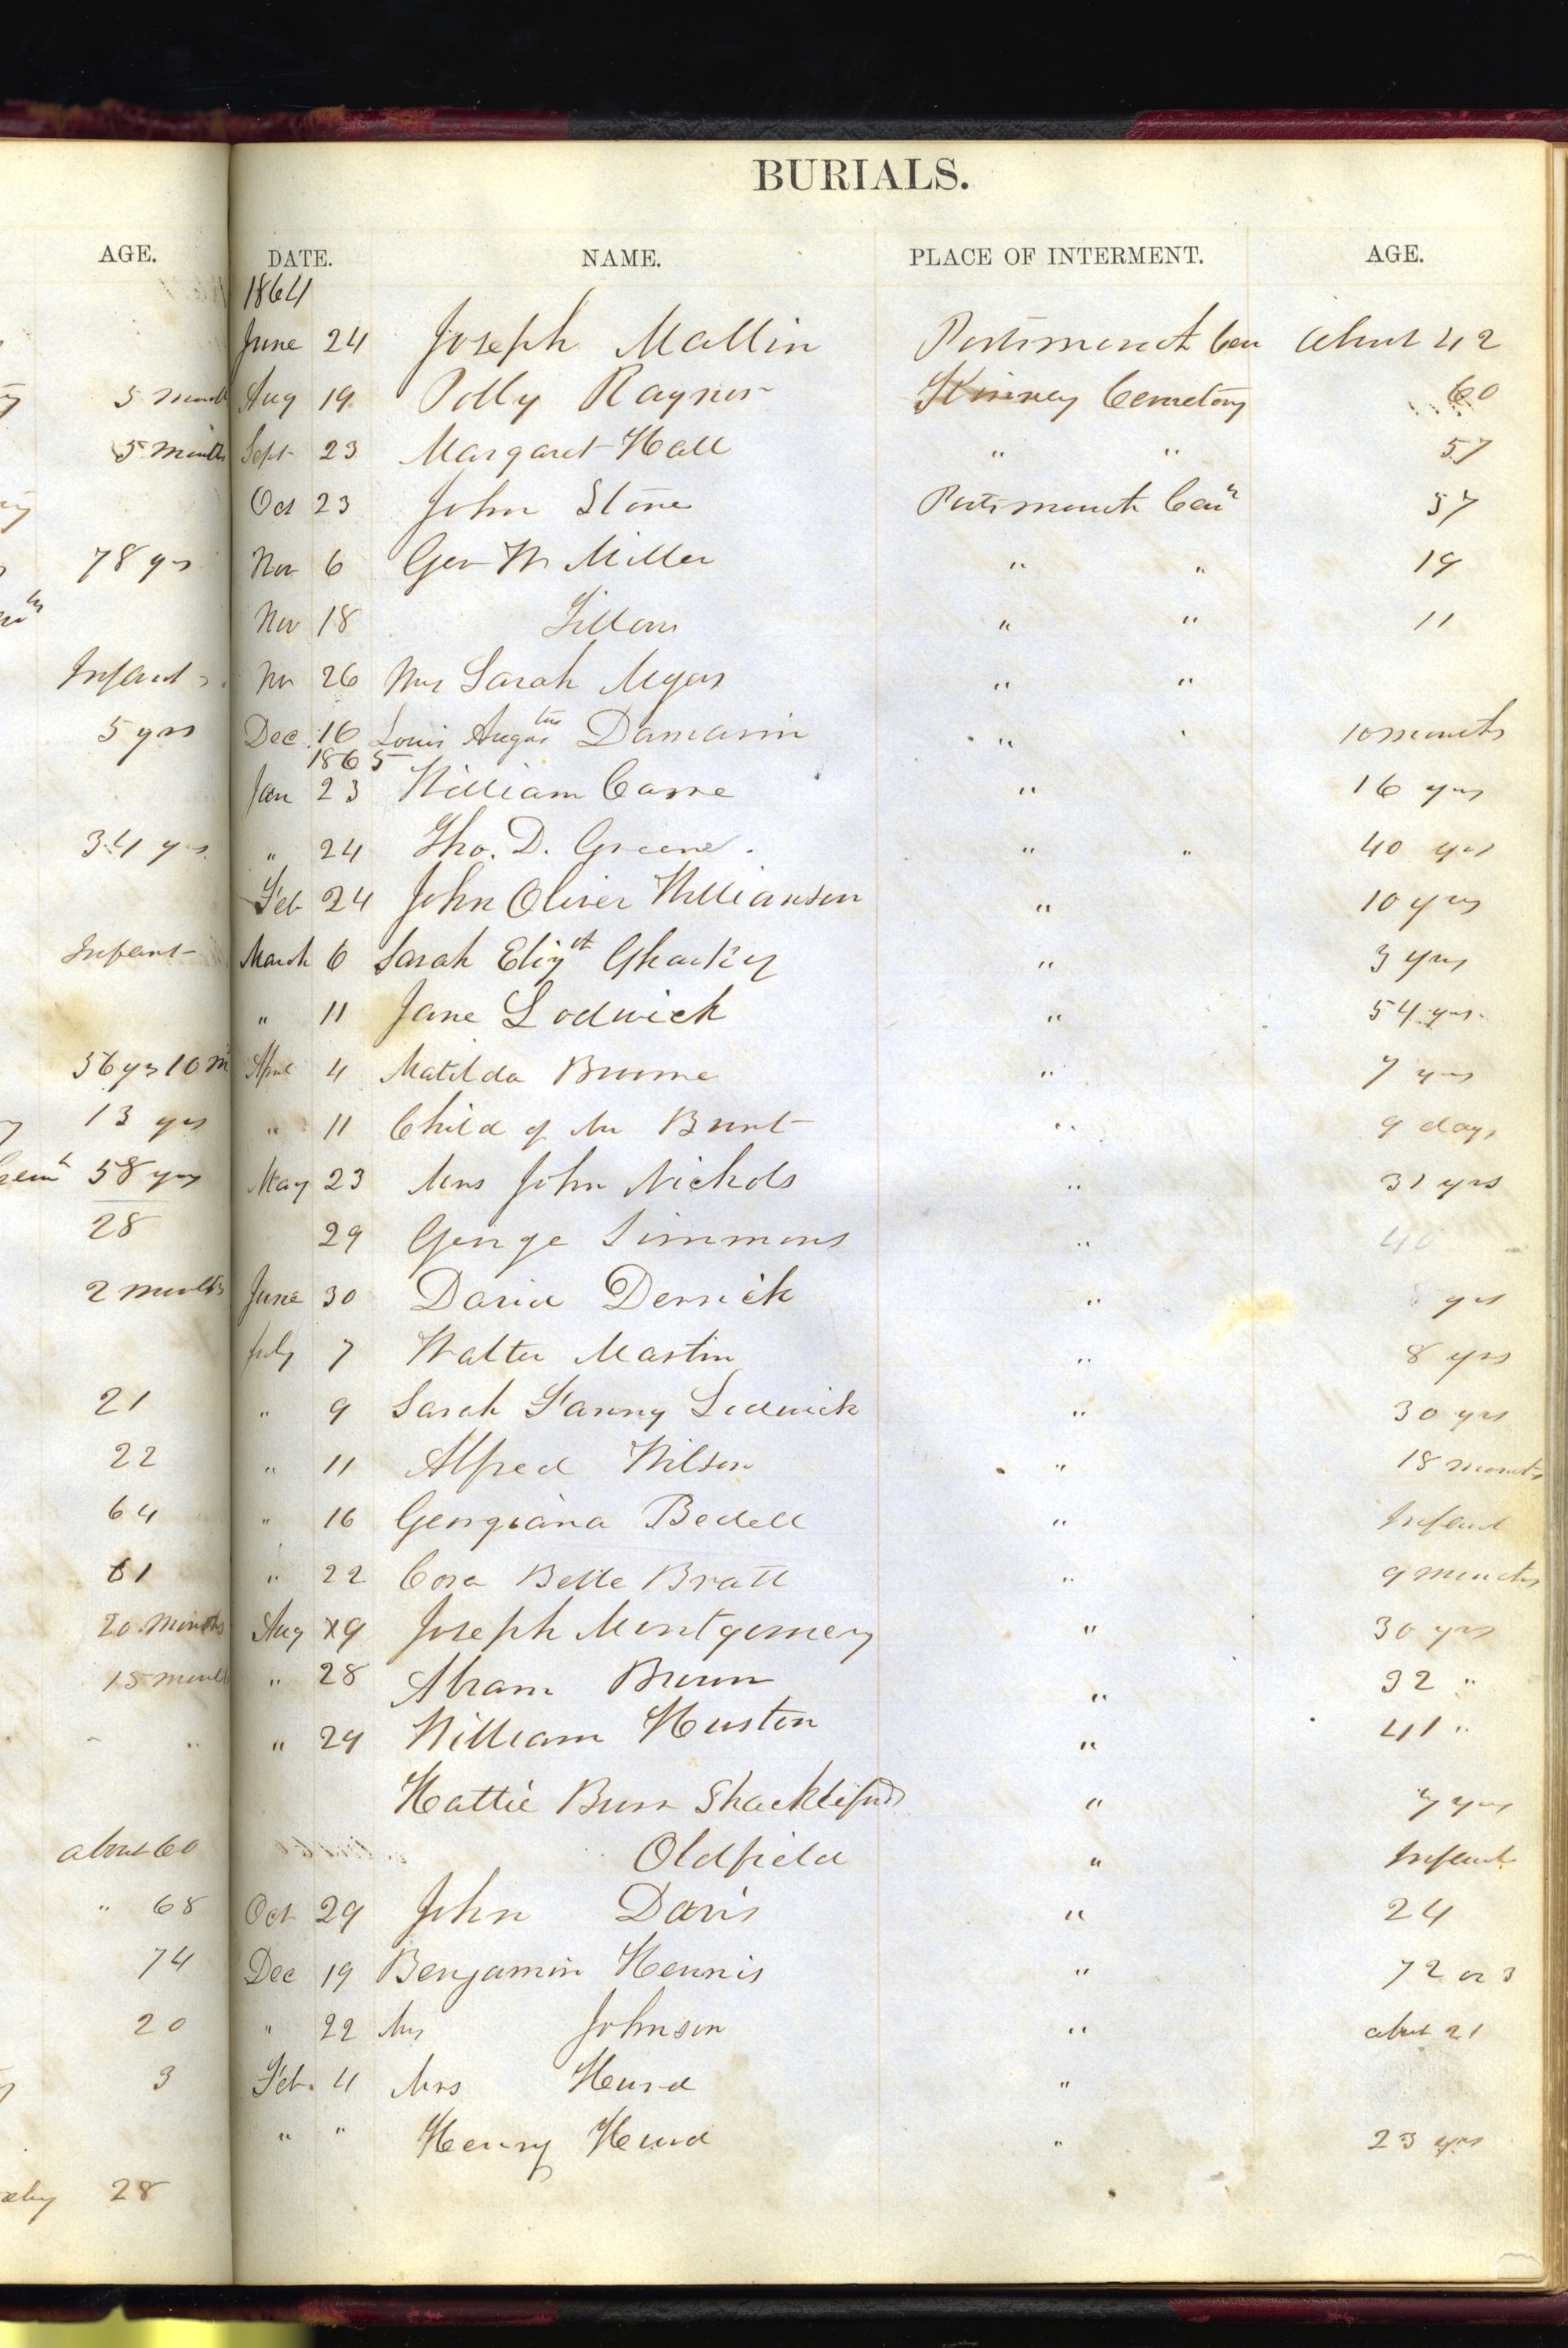 BURIALS.
AGE.
DATE. NAME. PLACE OF INTERMENT. AGE.
1864
June 24 Joseph Mallin Portsmouth Cem About 42
5 month Aug 19 Polly Raynor Kinney Cemetery 60
5 months Sept 23 Margaret Hall " " 57
Oct 23 John Stone Portsmouth Cemy 57
78 yrs Nov 6 Geo W Miller " " 19
Nov 18 " " 11
Infant Nov 26 Mrs Sarah Myers " "
5 yrs Dec 16 Louis Augustus Damarin " 10 months
1865
Jan 23 William Carre " 16 yrs
34 yrs " 24 Tho. D. Greene. " " 40 yrs
Feb 24 John Oliver Williamson " 10 yrs
Infant March 6 Sarah Elizt " 3 yrs
" 11 Jane Lodwick " 54 yrs
56 yrs 10 m April 4 Matilda " 7 yrs
13 yrs " 11 Child of Mr Burt " 9 days
58 yrs May 23 Mrs John Nichols " 31 yrs
28 29 George Simmons " 40
2 months June 30 David Derrick " yrs
July 7 Walter Mastin " 8 yrs
21 " 9 Sarah Fanny Lodwick " 30 yrs
22 " 11 Alfred Wilson " 18 months
64 " 16 Georgiana Bedell " Infant
61 " 22 Cora Belle Bratt " 9 months
20 months Aug 9 Joseph Montgomery " 30 yrs
15 month " 28 Abram Brown " 32 "
" " 29 William Huston " 41 "
Hattie Burr Shackleford " 7 yrs
about 60 Oldfield " Infant
" 68 Oct 29 John Davis " 24
74 Dec 19 Benjamin Hennis " 72 or 3
20 " 22 Mrs Johnson " about 21
3 Feb. 4 Mrs Hurd "
" " Henry Hurd " 23 yrs
28